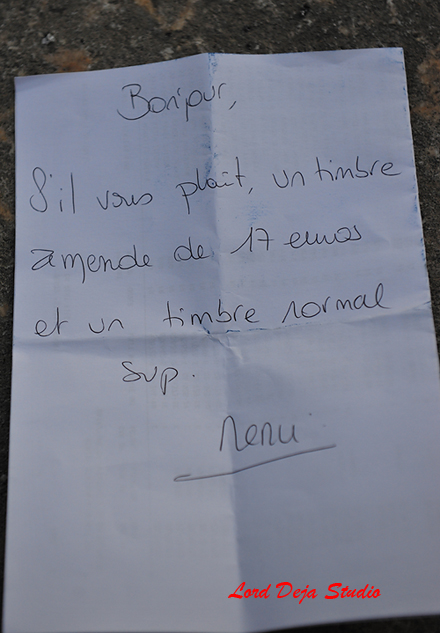 Bonjour,
S'il vous plaît, un timbre
amende de 17 euros
et un timbre normal
svp.
Merci
Lord Deja Studio